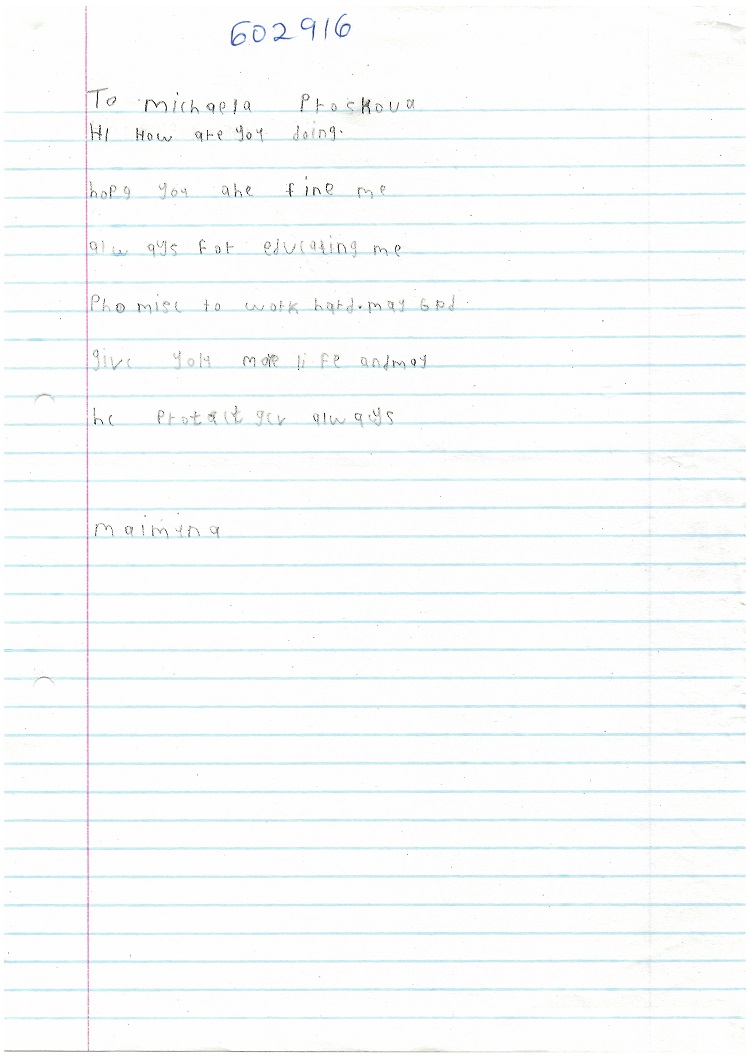 602916
To michaela Proskova
HI How are you doing.
hope you are fine me
always for educating me
Promise to work hard. may God
give you more life and may
he protect you always
maimuna